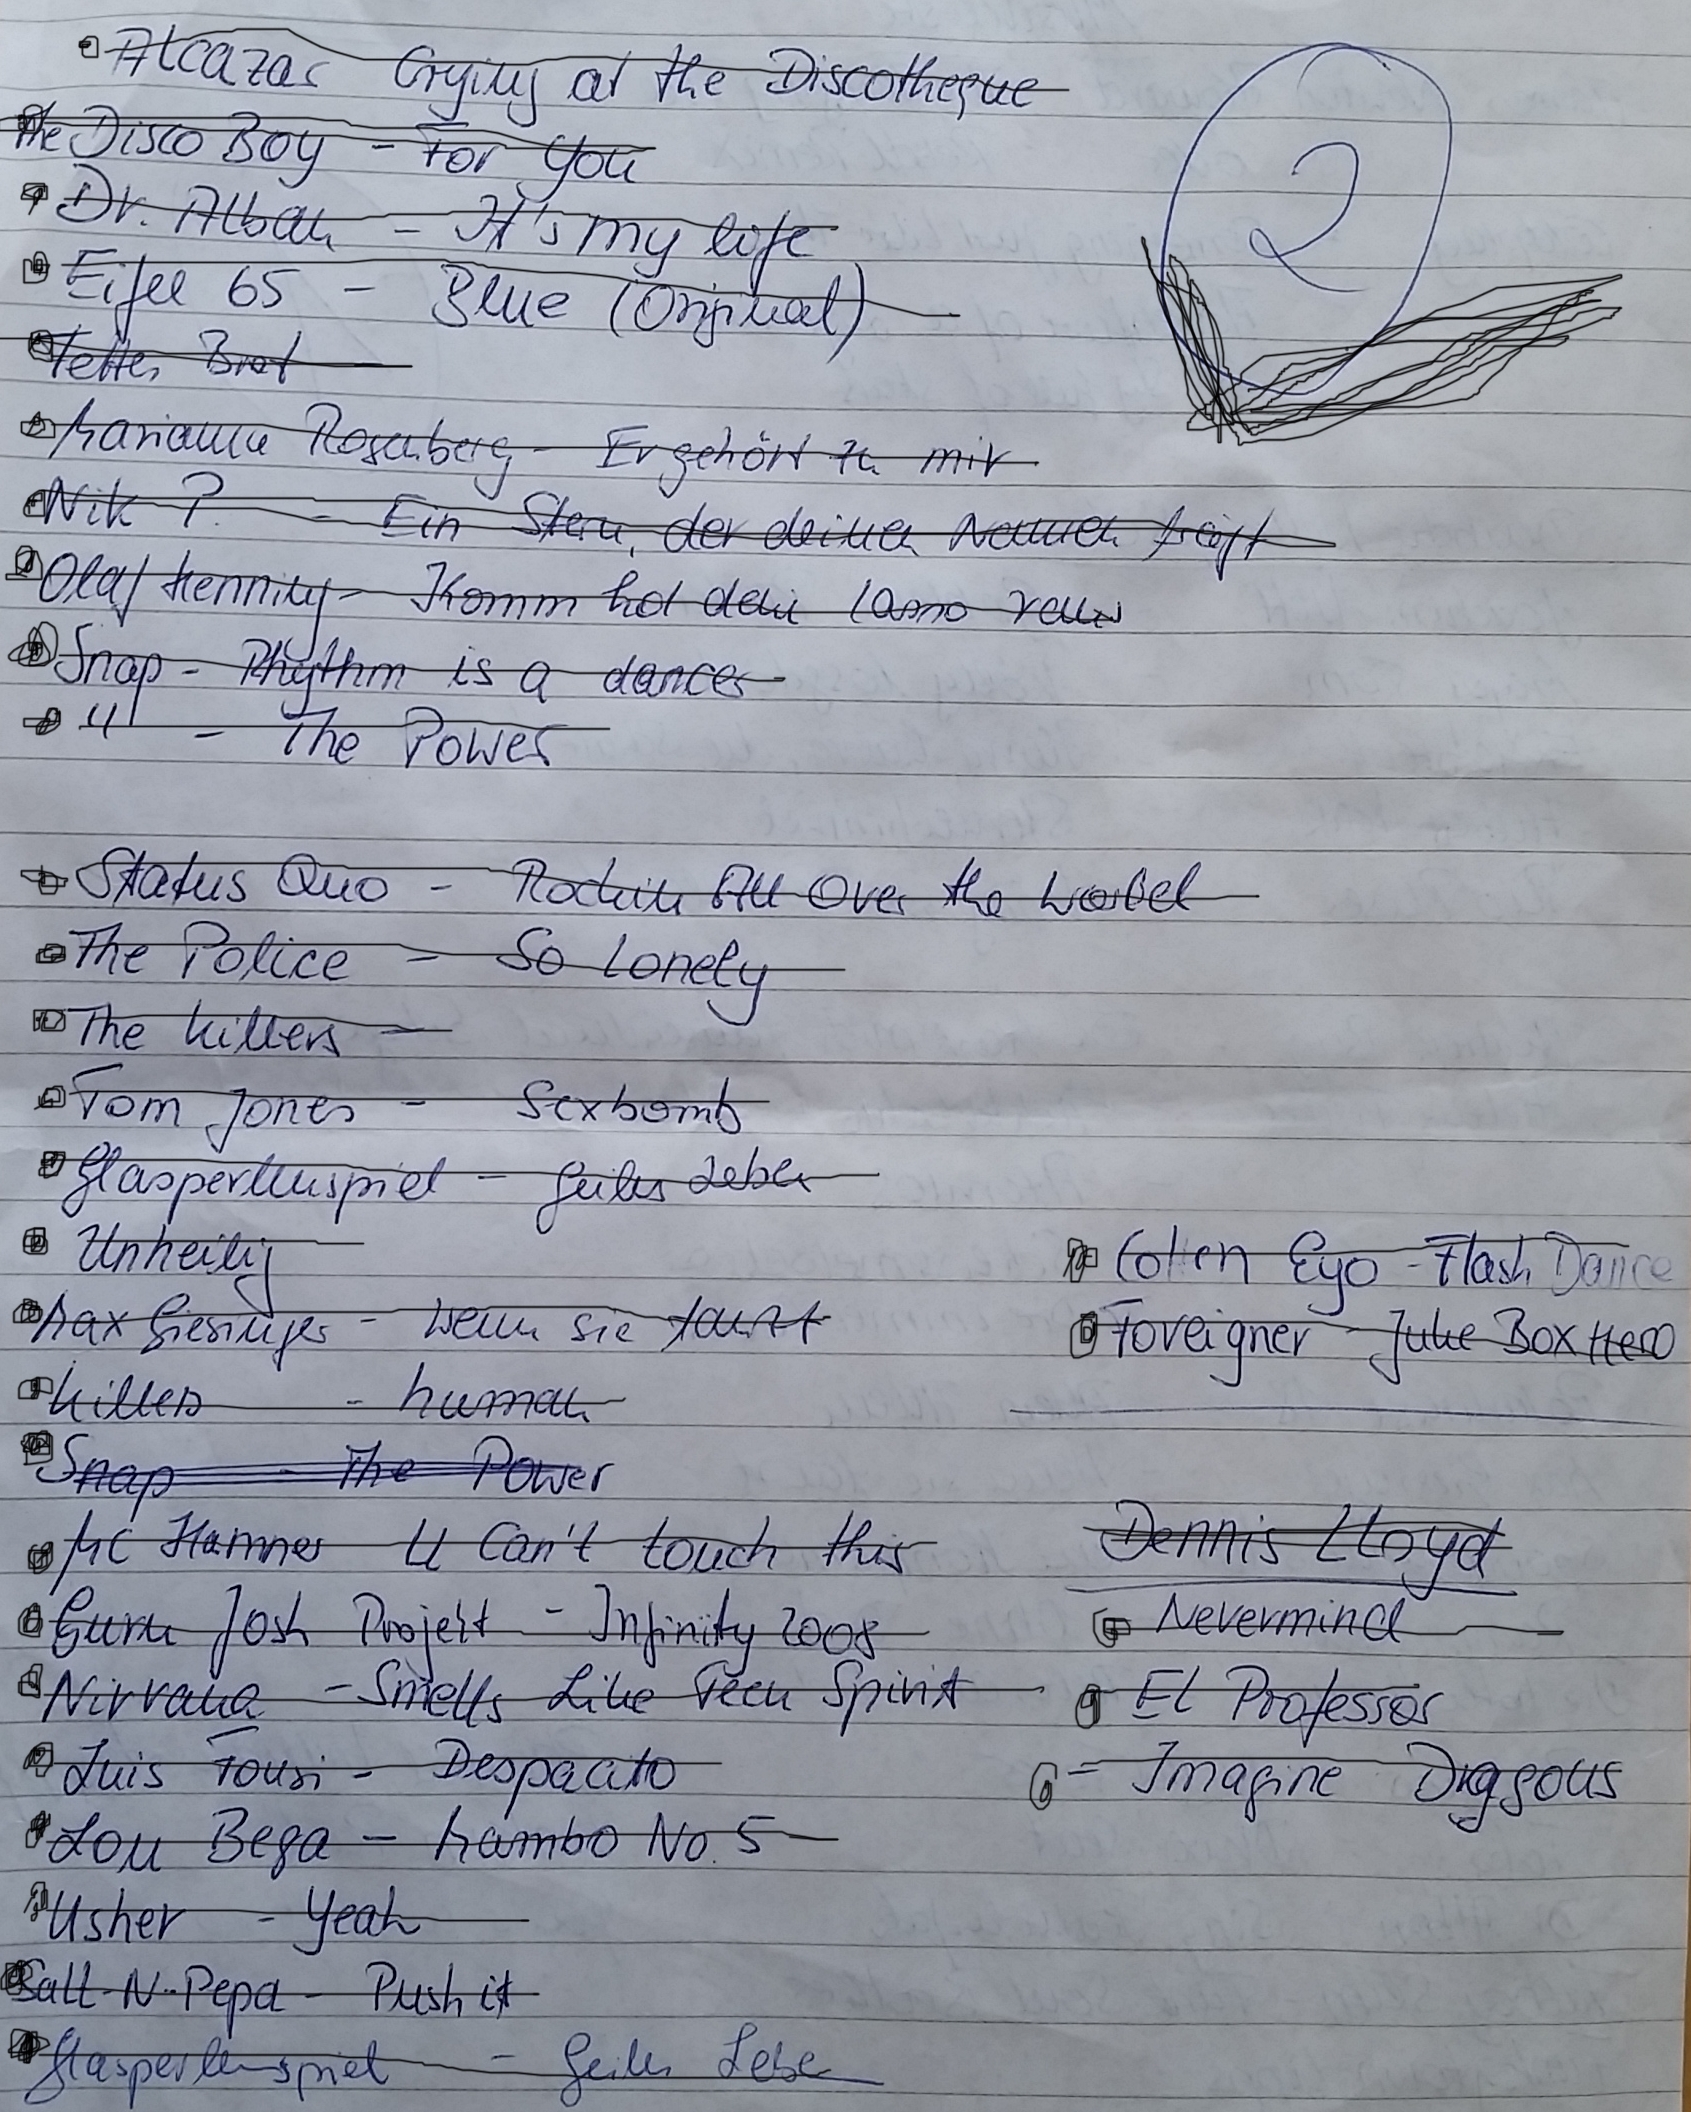 Alcazar Crying at the Discotheque
2
The Disco Boy - For You
Dr. Alban - It's my life
Eifel 65 - Blue (Original)
Fettes Brot
Marianne Rosenberg - Er gehört zu mir
Nik ? - Ein Stern, der deinen Namen trägt
Olaf Henning - Komm hol dein Lasso raus
Snap - Rhythm is a dancer
" - The Power
Status Quo - Rockin All Over the World
The Police - So Lonely
The Killers -
Tom Jones - Sexbomb
Glasperlenspiel - Geiles Leben
Unheilig
Max Giesinger - Wenn sie tanzt
Killers - human
Snap - The Power
MC Hammer U Can't touch this
Guru Josh Projekt - Infinity 2008
Nirvana - Smells Like Teen Spirit
Luis Fonsi - Despacito
Lou Bega - Mambo No. 5
Usher - Yeah
Salt-N-Pepa - Push it
Glasperlenspiel - Geiles Leben
Cotten Eyo - Flash Dance
Foreigner - Juke Box Hero
Dennis Lloyd
Nevermind
El Professor
- Imagine Dragons